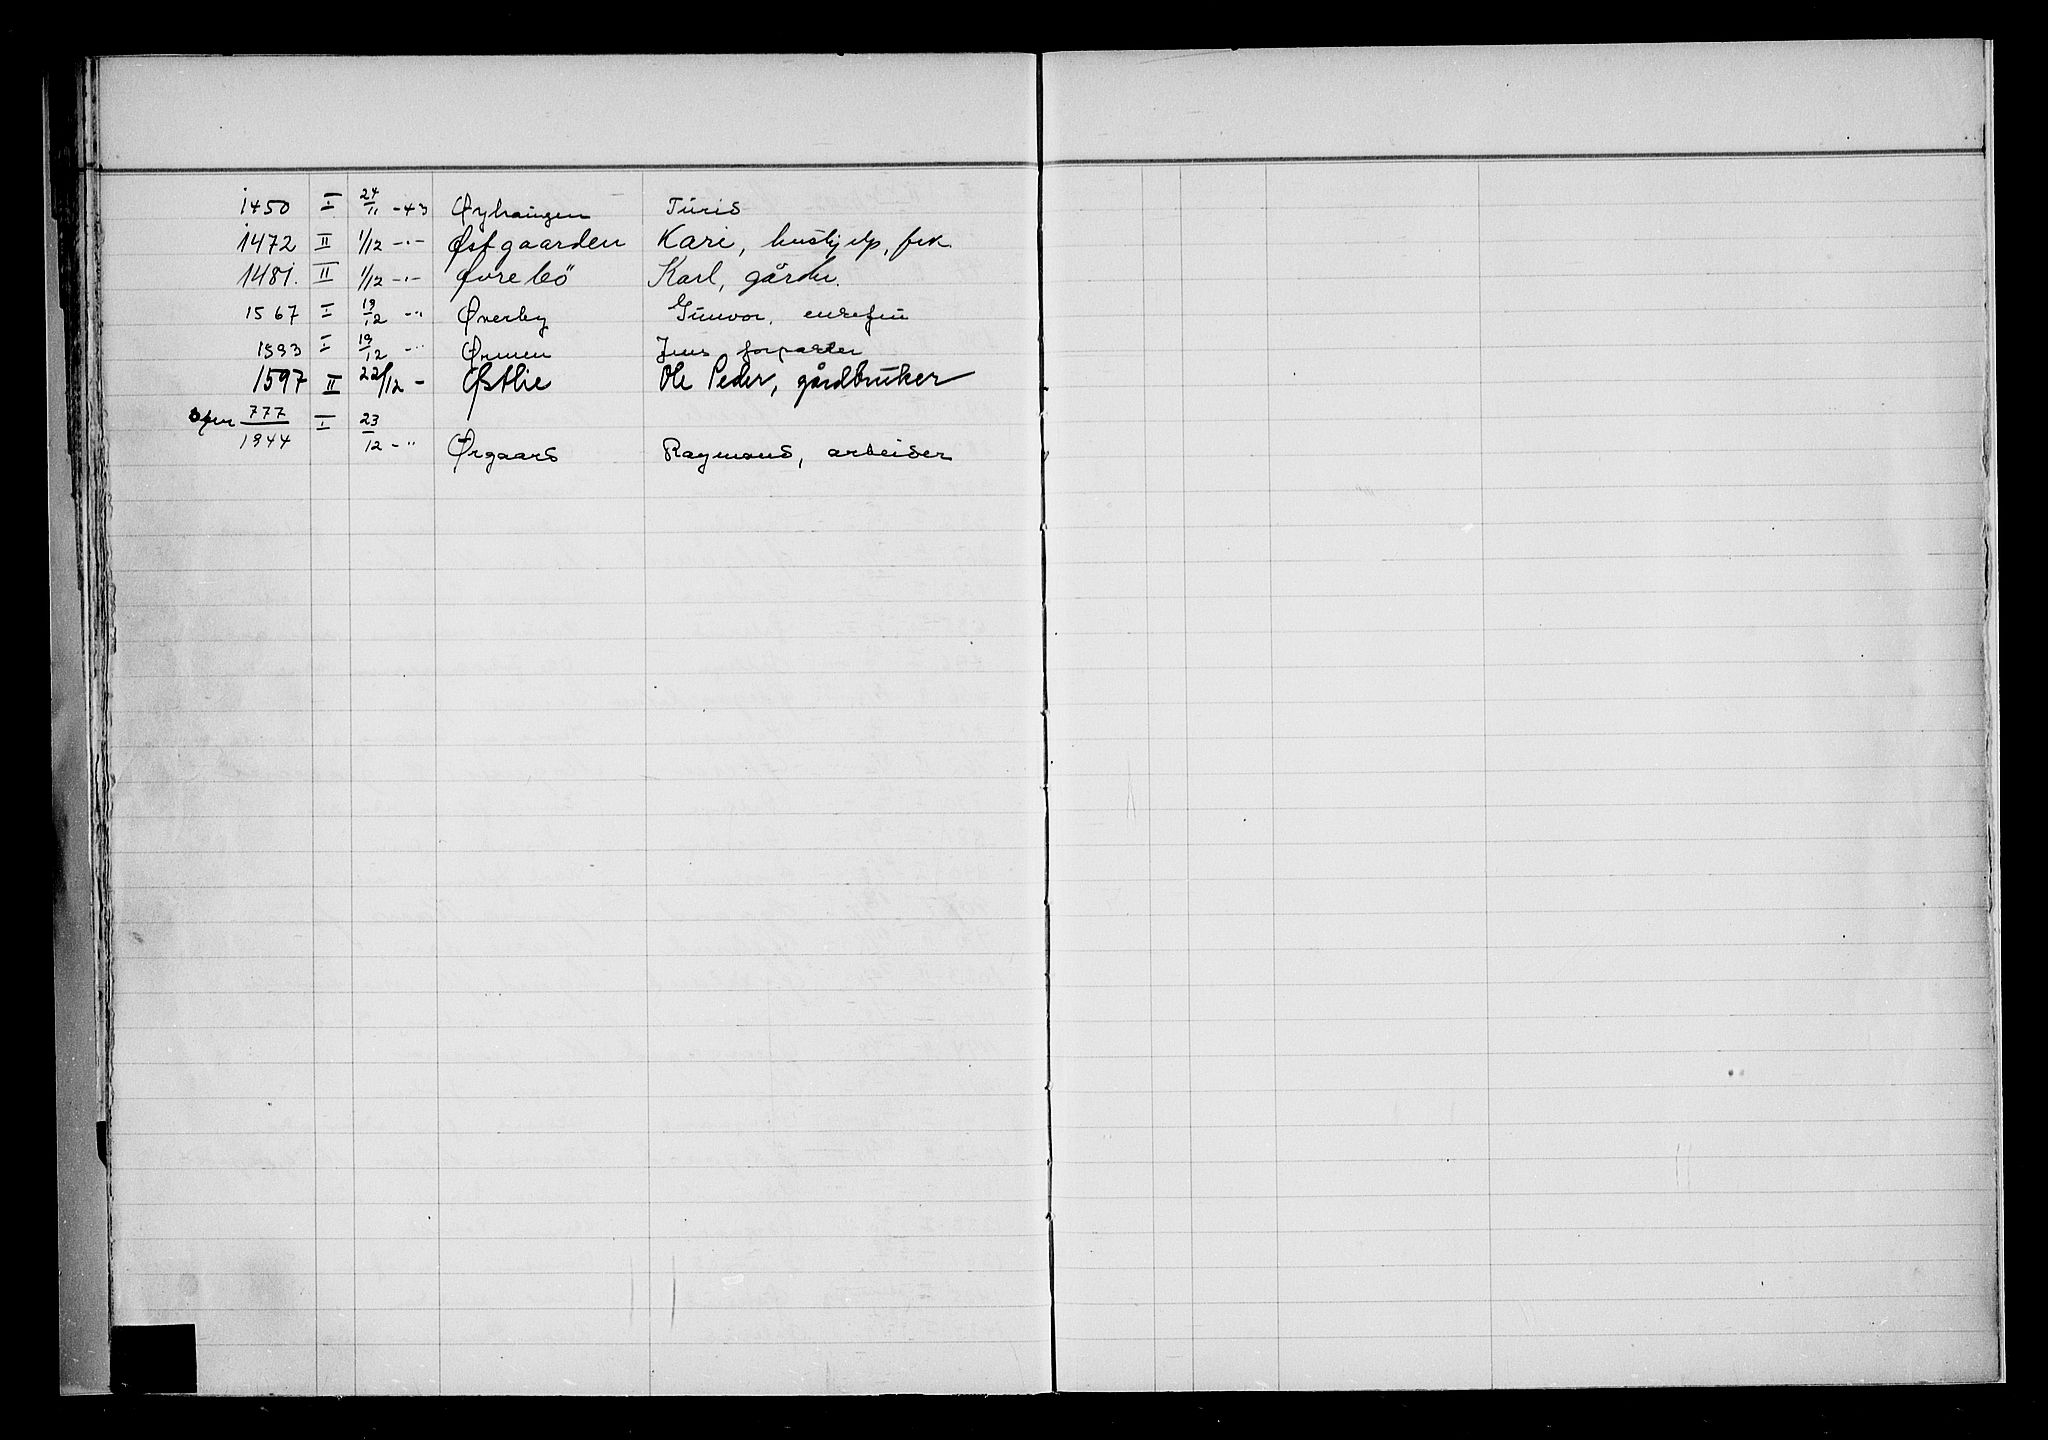 1450 I 24/11 -43 Øyhaugen Turid
1472 II 1/12 -"- Østgaarden Kari, hushjelp, frk.
1481. II 1/12 -"- Øvrebö Karl, gårdbr.
1567 I 19/12 -" Øverby Gunvor, enkefru
1593 I 19/12 -" Ørmen Jens forpakter
1597 II 22/12 - Østlie Ole Peder, gårdbruker
777/1944 I 23/12 -" Ørgaard Raymond, arbeider